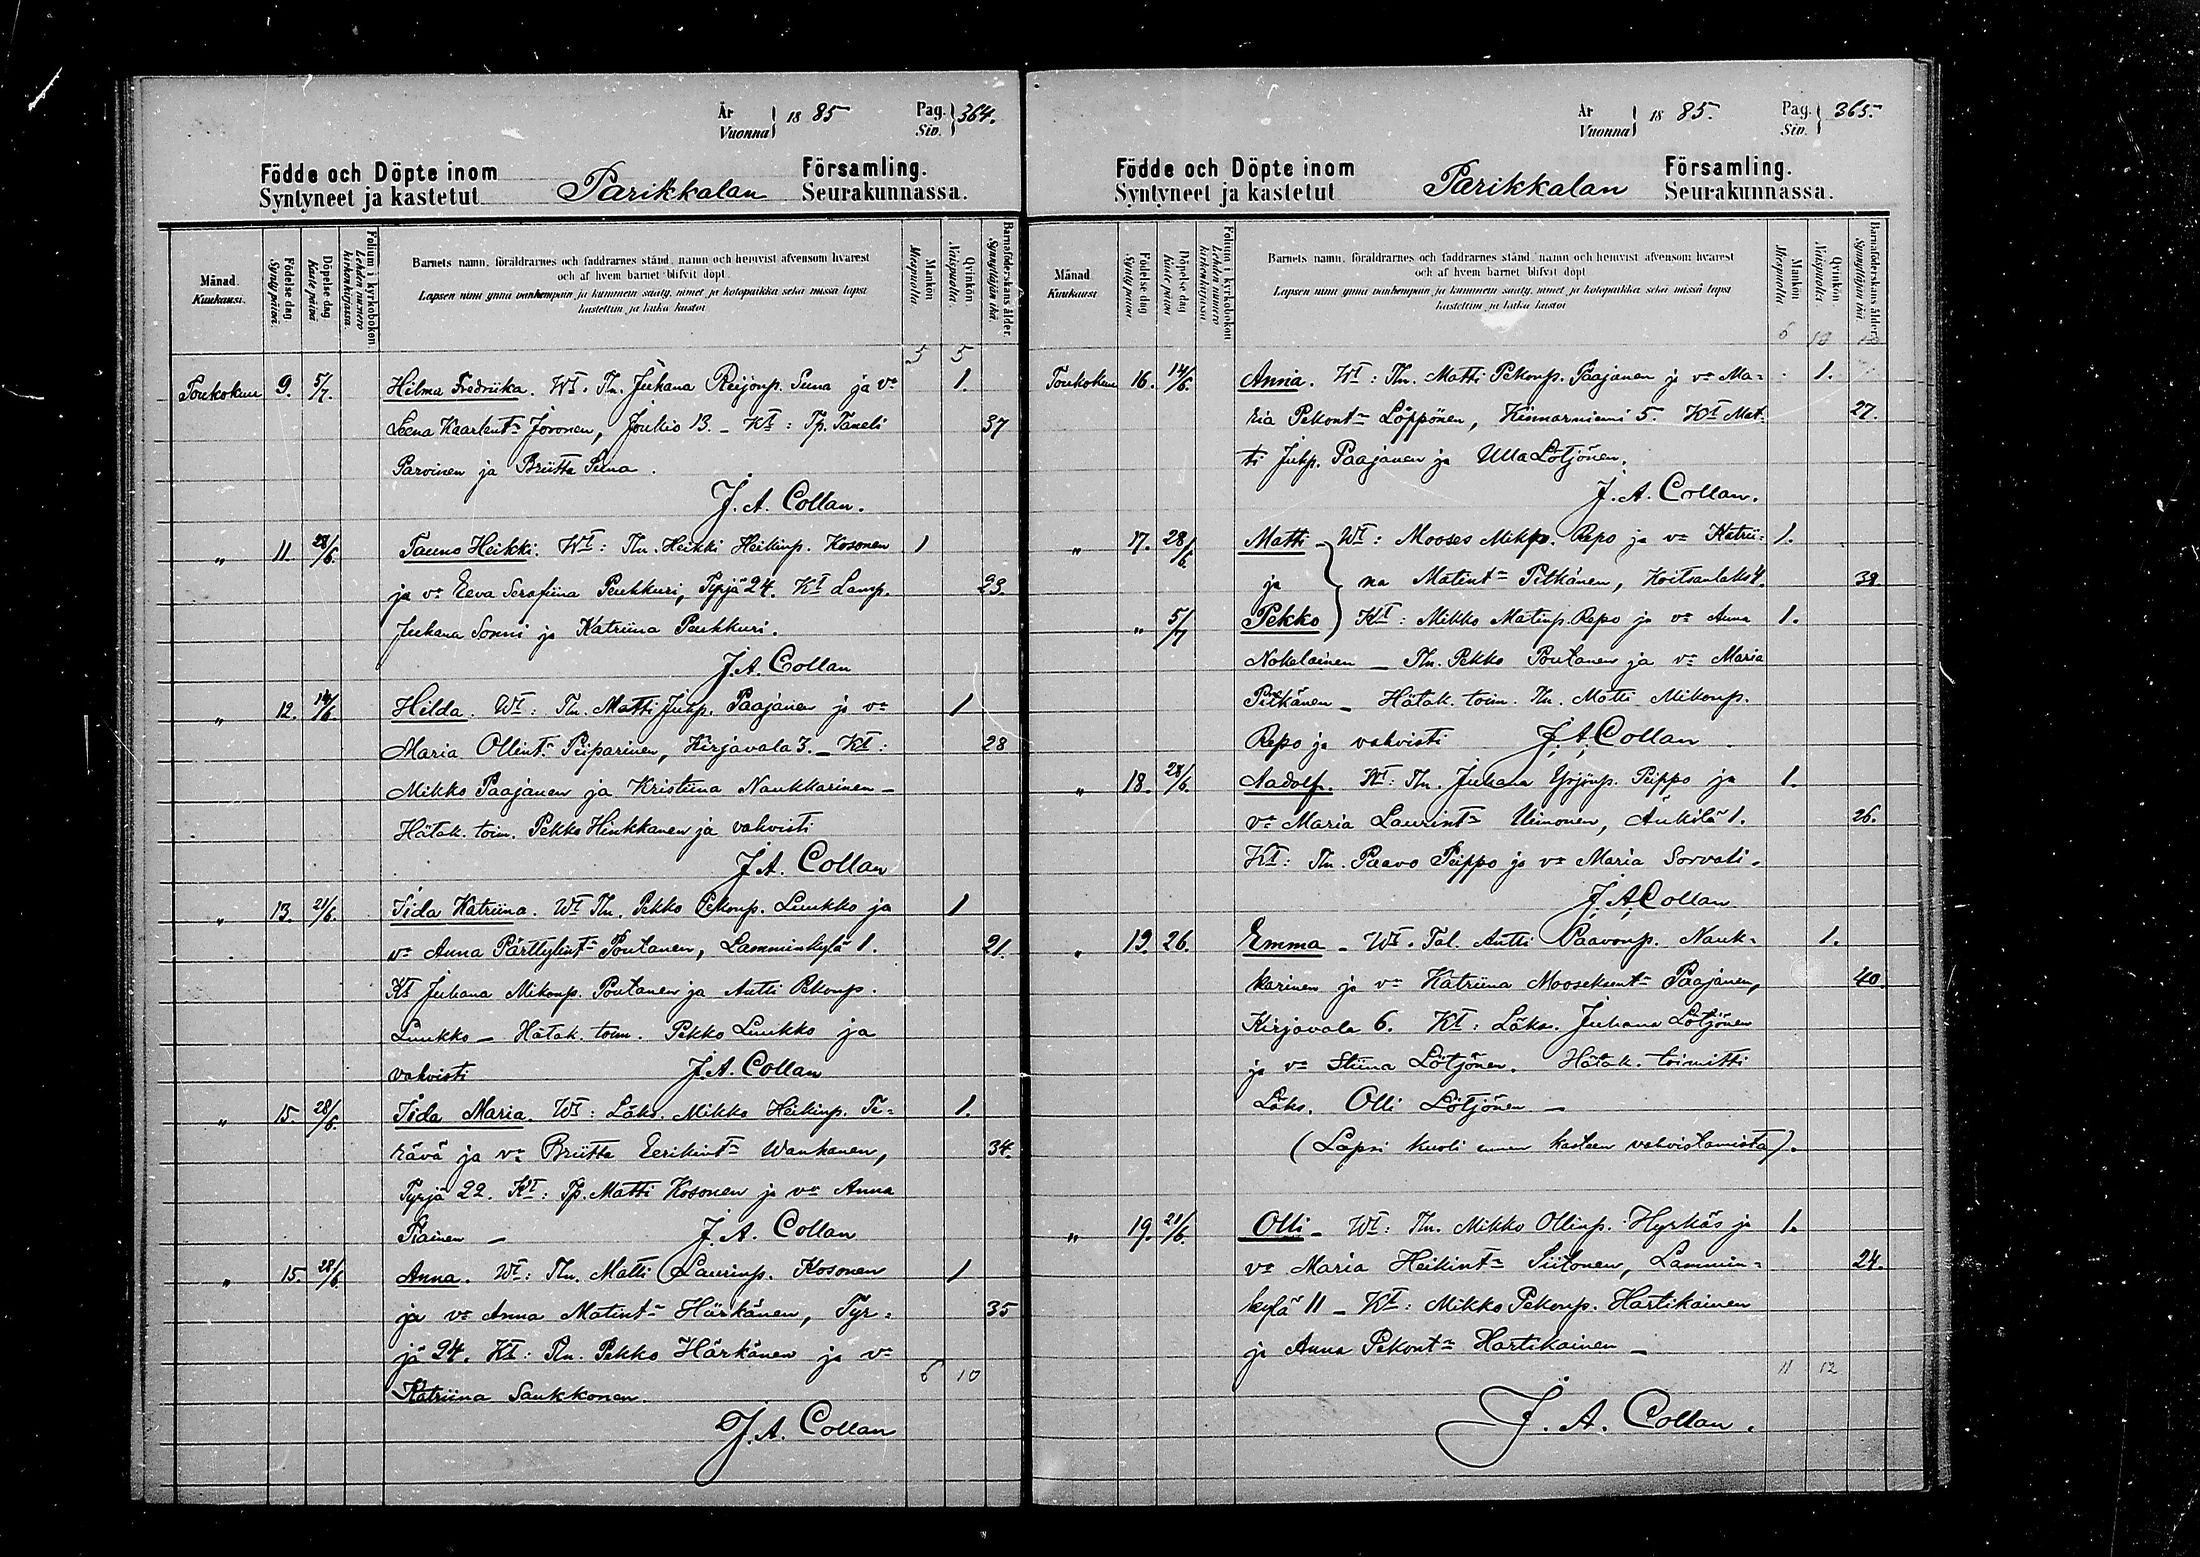 År
Vuonna 1885
Pag.
Siv. 364.
Födde och Döpte inom
Syntyneet ja kastetut
Parikkalan
Församling.
Seurakunnassa.
Månad.
Kuukausi.
Födelse dag
Synty päivä.
Döpelse dag
Kaste päivä
Folium i kyrkoboken
Lehden numero
kirkonkirjassa.
Barnets namn, föräldrarnes och faddrarnes stånd, namn och hemvist äfvensom hvarest
och af hvem barnet blifvit döpt.
Lapsen nimi ynnä vanhempain ja kummein sääty, nimet ja kotopaikka sekä missä lapsi
kastettiin ja kuka kastoi
Mankön
Miespuolta.
Qvinkön.
Naispuolta.
Barnaföderskans ålder.
Synnyttäjän ikä.
5 5
Toukokuu 9. 5/7. Hilma Fredriika. Wt. Tln. Juhana Reijonp. Suna ja vo 1.
Leena Kaarlent. Joronen, Joukio 13. - Kt: Tp. Taneli 37
Parvinen ja Briitta Suna.
J. A. Collan.
" 11. 28/6. Tauno Heikki. Wt: Tln. Heikki Heikinp. Kosonen 1
ja vo Eeva Serafiina Peuhkuri, Tyrjä 24. Kt Lamp. 23.
Juhana Sonni ja Katriina Peuhkuri.
J. A. Collan
" 12. 14/6. Hilda. Wt: Tln. Matti Juhp. Paajanen ja vo 1
Maria Ollint. Peiparinen, Kirjavala 3. - Kt: 28
Mikko Paajanen ja Kristiina Naukkarinen -
Hätäk. toim. Pekko Hinkkanen ja vahvisti
J. A. Collan
" 13. 21/6. Iida Katriina. Wt Tln. Pekko Pekonp. Luukko ja 1
vo Anna Pärttylint. Poutanen, Lamminkylä 1. 21.
Kt Juhana Mikonp. Poutanen ja Antti Pekonp.
Luukko - Hätäk. toim. Pekko Luukko ja
vahvisti J. A. Collan
" 15. 28/6. Iida Maria. Wt: Läks. Mikko Heikinp. Te= 1.
rävä ja vo Briitta Eerikint. Wankanen, 34.
Tyrjä 22. Kt: Tp. Matti Kosonen ja vo Anna
Piainen - J. A. Collan
" 15. 28/6. Anna. Wt: Tln. Matti Laurinp. Kosonen 1
ja vo Anna Matint. Härkänen, Tyr= 35
jä 24. Kt: Tln. Pekko Härkänen ja vo
Katriina Saukkonen. 6 10
J. A. Collan
År
Vuonna 1885.
Pag.
Siv. 365.
Födde och Döpte inom
Syntyneet ja kastetut
Parikkalan
Församling.
Seurakunnassa.
Månad
Kuukausi
Födelse dag
Synty päivä.
Döpelse dag
Kaste päivä
Folium i kyrkoboken
Lehden numero
kirkonkirjassa.
Barnets namn, föräldrarnes och faddrarnes stånd, namn och hemvist äfvensom hvarest
och af hvem barnet blifvit döpt
Lapsen nimi ynnä vanhempain ja kummein sääty, nimet ja kotopaikka sekä missä lapsi
kastettiin ja kuka kastoi
Mankön
Miespuolta
Qvinkön.
Naispuolta
Barnaföderskans ålder.
Synnyttäjän ikä.
6 10
Toukokuu 16. 14/6. Anna. Wt: Tln. Matti Pekonp. Paajanen ja vo Ma- 1.
ria Pekont. Löppönen, Kinnarniemi 5. Kt Mat- 27.
ti Juhp. Paajanen ja Ulla Lötjönen.
J. A. Collan.
" 17. 28/6. Matti - Wt: Mooses Mikkp. Repo ja vo Katrii- 1.
ja na Matint. Pitkänen, Koitsanlaks 4. 38.
" 5/7 Pekko Kt: Mikko Matinp. Repo ja vo Anna 1.
Nokelainen - Tln. Pekko Poutanen ja vo Maria
Pitkänen - Hätäk. toim. Tln. Matti Mikonp.
Repo ja vahvisti J. A. Collan.
" 18. 28/6. Aadolf. Wt: Tln. Juhana Yrjönp. Peippo ja 1.
vo Maria Laurint. Uimonen, Änkilä 1. 26.
Kt: Tln. Paavo Peippo ja vo Maria Sorvali.
J. A. Collan
" 19. 26. Emma - Wt. Tal. Antti Paavonp. Nauk- 1.
karinen ja vo Katriina Mooseksent. Paajanen, 40.
Kirjavala 6. Kt: Läks. Juhana Lötjönen
ja vo Stiina Lötjönen. Hätäk. toimitti
Läks. Olli Lötjönen -
(Lapsi kuoli ennen kasteen vahvistamista).
" 19. 21/6. Olli - Wt: Tln. Mikko Ollinp. Hyrkäs ja 1.
vo Maria Heikint. Tiitonen, Lammin- 24.
kylä 11 - Kt: Mikko Pekonp. Hartikainen
ja Anna Pekont. Hartikainen -
11 12
J. A. Collan.